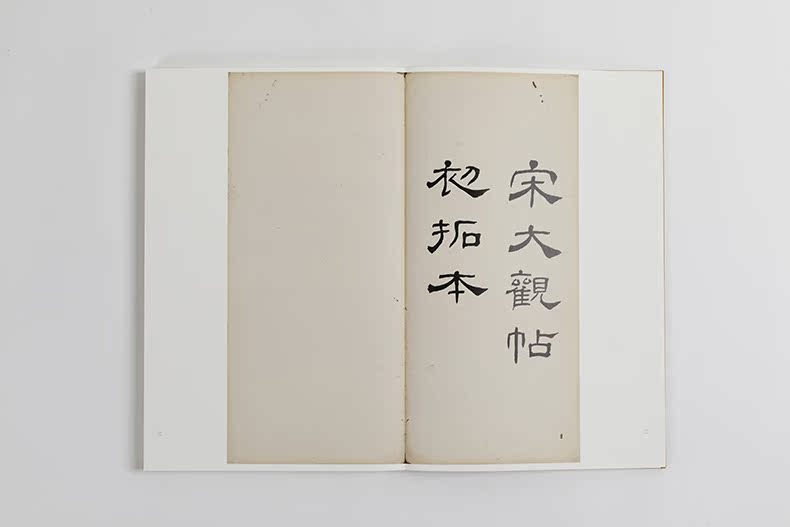 宋大觀帖
初拓本